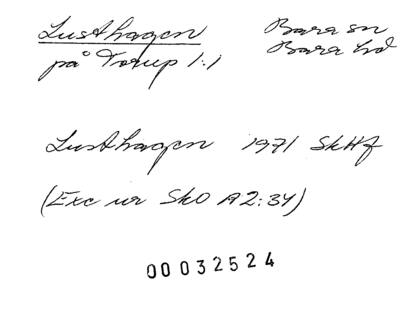 Lusthagen Bara sn
på Torup 1:1 Bara hd
Lusthagen 1971 SkHf
(Exc ur SkO A2:34)
00032524